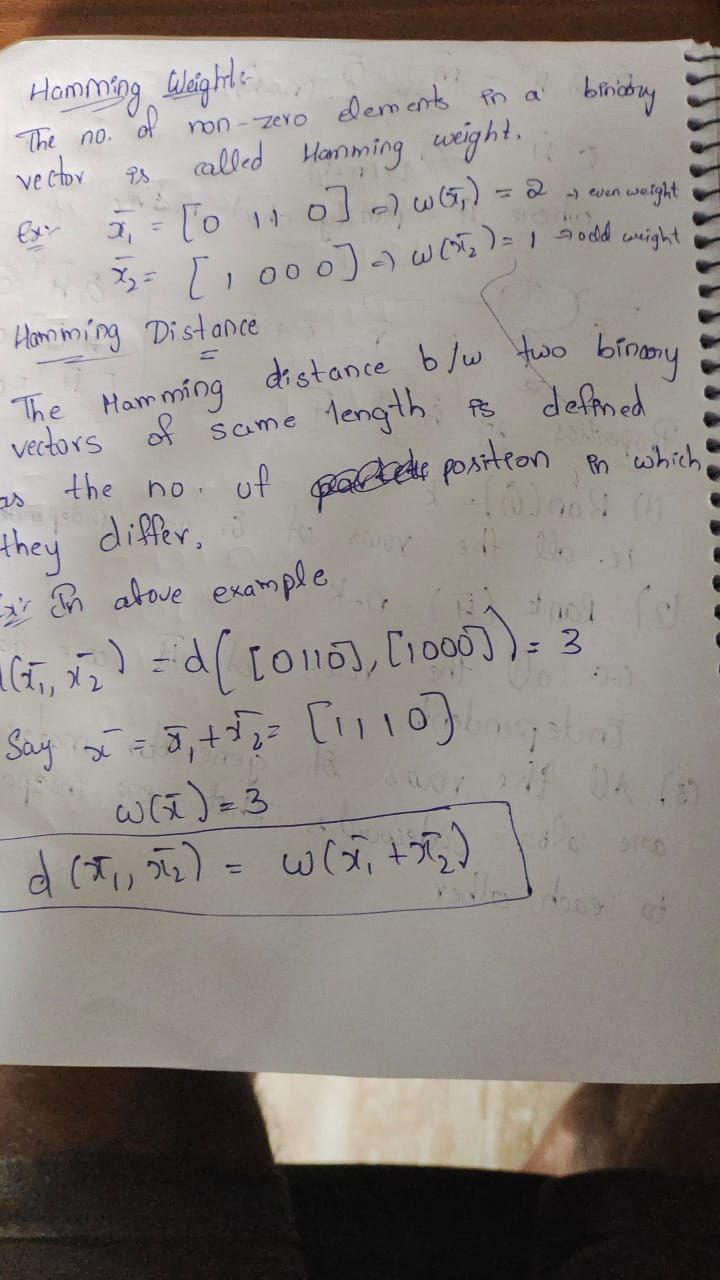 Hamming Weight:-
The no. of non-zero elements in a binary
vector is called Hamming weight.
Ex:- x̄₁ = [0 1 1 0] => w(x̄₁) = 2 → even weight
x̄₂ = [1 0 0 0] => w(x̄₂) = 1 → odd weight
Hamming Distance
The Hamming distance b/w two binary
vectors of same length is defined
as the no. of position in which
they differ.
Ex:- In above example
d(x̄₁, x̄₂) = d([0110], [1000]) = 3
Say x̄ = x̄₁ + x̄₂ = [1110]
w(x̄) = 3
d(x̄₁, x̄₂) = w(x̄₁ + x̄₂)